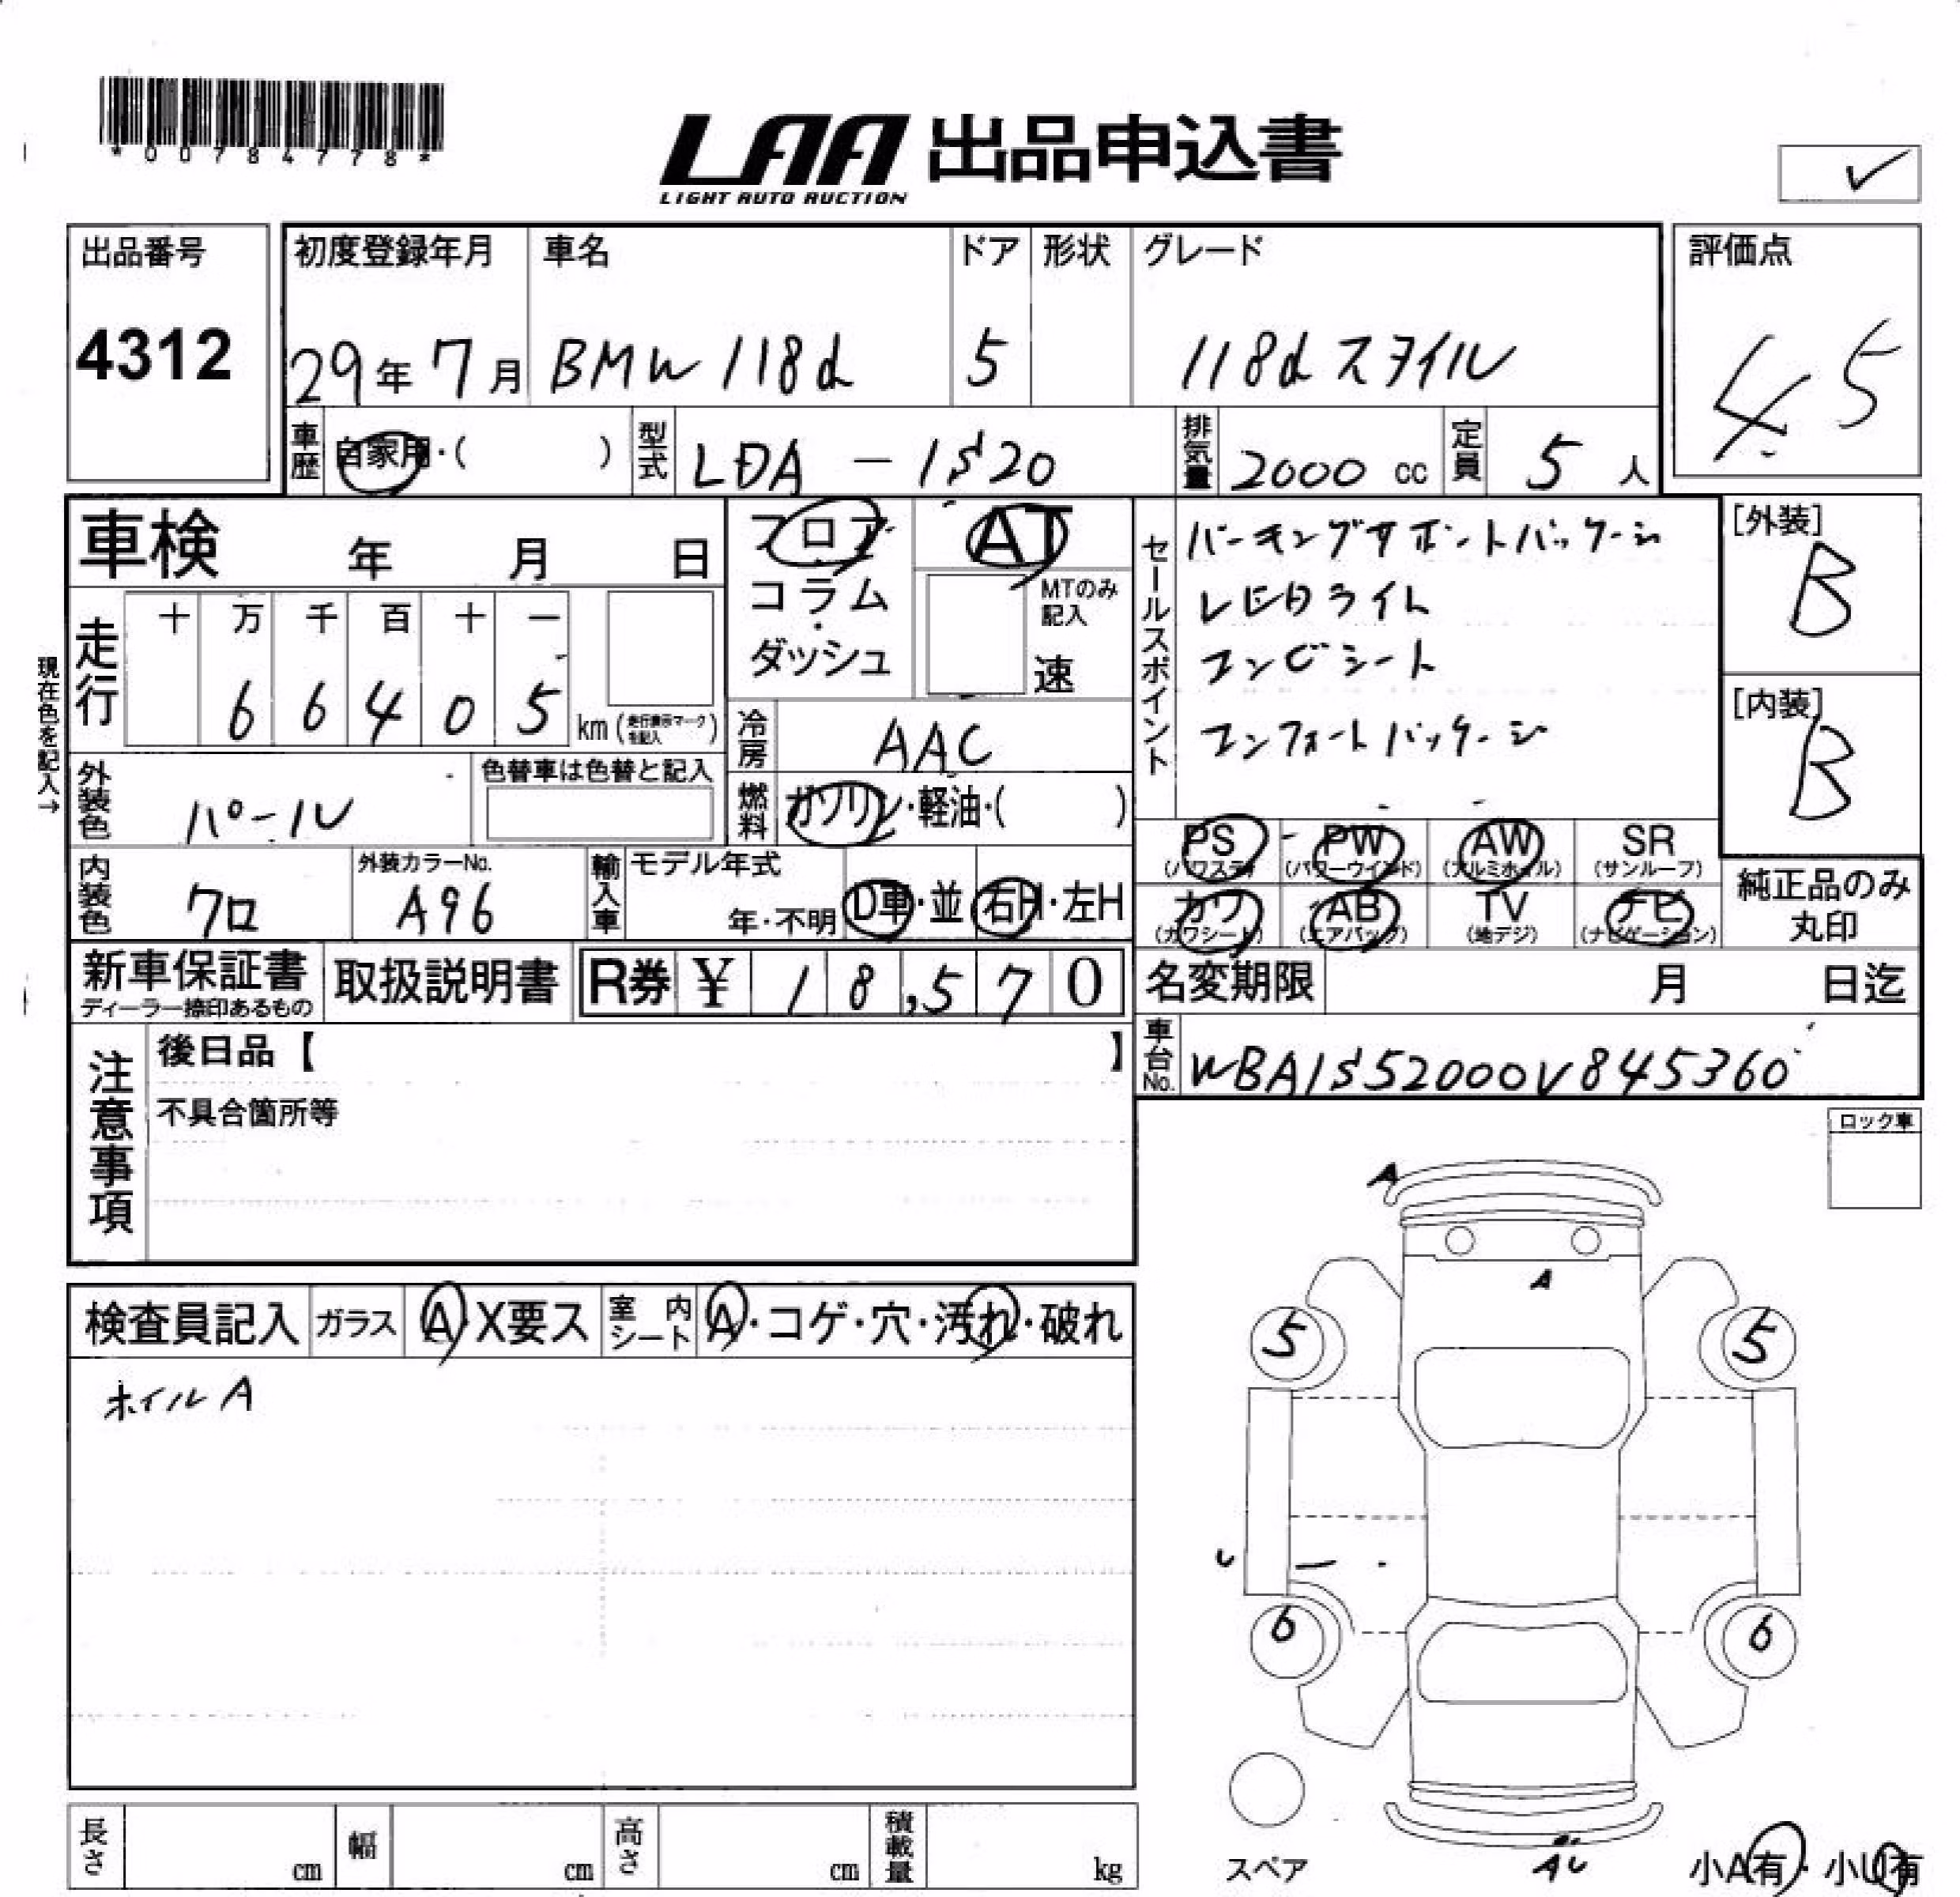 *00784778*
LAA 出品申込書
LIGHT AUTO AUCTION
✓
出品番号
4312
初度登録年月
29年 7月
車名
BMW 118d
ドア
5
形状
グレード
118d スタイル
評価点
4.5
車歴 自家用・( )
型式 LDA - 1S20
排気量 2000 cc
定員 5 人
車検 年 月 日
現在色を記入→
走行 十 万 千 百 十 一
6 6 4 0 5
km (走行表示マークを記入)
フロア
コラム
・
ダッシュ
AT
MTのみ
記入
速
冷房 AAC
燃料 ガソリン・軽油・( )
外装色 パール
色替車は色替と記入
内装色 クロ
外装カラーNo.
A96
輸入車 モデル年式
年・不明 D車・並 右H・左H
セールスポイント
パーキングサポートパッケージ
LEDライト
コンビシート
コンフォートパッケージ
[外装]
B
[内装]
B
PS (パワステ)
PW (パワーウインド)
AW (アルミホイル)
SR (サンルーフ)
カワ (カワシート)
AB (エアバッグ)
TV (地デジ)
ナビ (ナビゲーション)
純正品のみ
丸印
新車保証書
ディーラー捺印あるもの
取扱説明書
R券 ¥ 18,570
名変期限 月 日迄
車台No. WBA1S52000V845360
注意事項
後日品【 】
不具合箇所等
ロック車
検査員記入 ガラス A・X要ス 室内シート A・コゲ・穴・汚れ・破れ
ホイル A
A
A
5
5
U
6
6
スペア
AU
小A有・小U有
長さ cm
幅 cm
高さ cm
積載量 kg